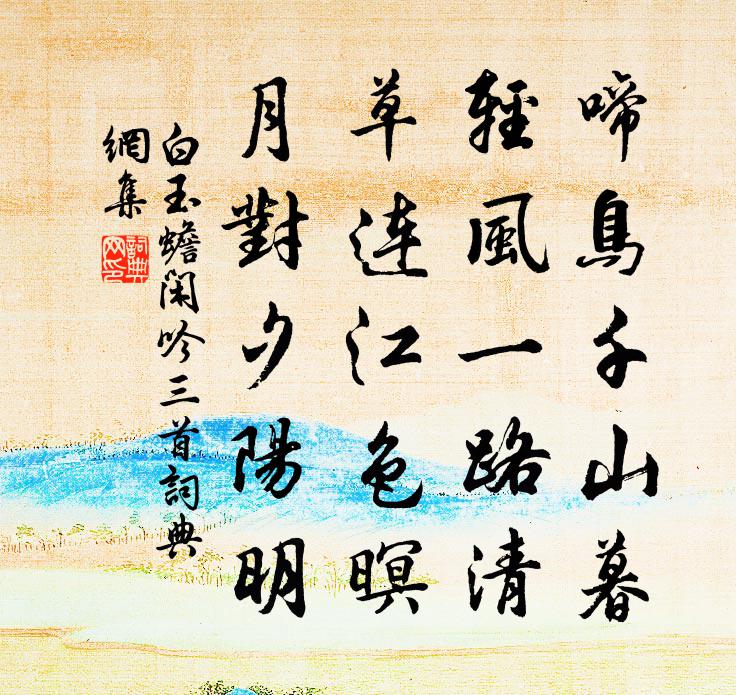 啼鳥千山暮
輕風一路清
草連江色暝
月對夕陽明
白玉蟾閑吟三首詞典
網集
詞典
网印